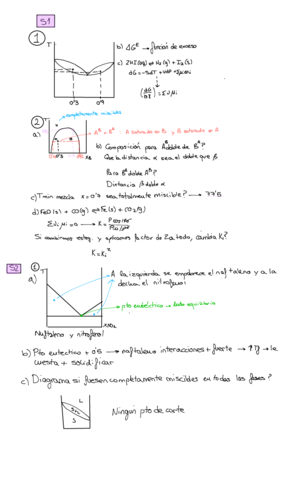 S1
1
T
0'3
0'9
b) ΔG^E → función de exceso
c) 2HI(g) ⇌ H₂(g) + I₂(g)
dG = -SdT + VdP + Σμᵢdnᵢ
(dG/dξ) = Σνᵢμᵢ
2
completamente miscibles
a)
T
A en B
b) Composición para A^α doble de B^α?
Que la distancia α sea el doble que β
Para B^α doble A^β?
Distancia β doble α
c) T min mezcla x = 0'5 sea totalmente miscible? → 775
d) FeO(s) + CO(g) ⇌ Fe(s) + CO₂(g)
Σνᵢμᵢ = 0 → K =
Si cambiamos esteq. y aplicamos factor de 2 a todo, cambia K?
K = K₁²
S2
1
a)
T
A la izquierda se empobrece el naftaleno y a la
decha el nitrofenol
pto eutéctico →
Naftaleno y nitrofenol
b) Pto eutectico ≠ 0'5 → naftaleno interacciones + fuerte → ↑Tf → le
cuesta + solidificar
c) Diagrama si fuesen completamente miscibles en todas las fases?
L
S+L
S
Ningún pto de corte